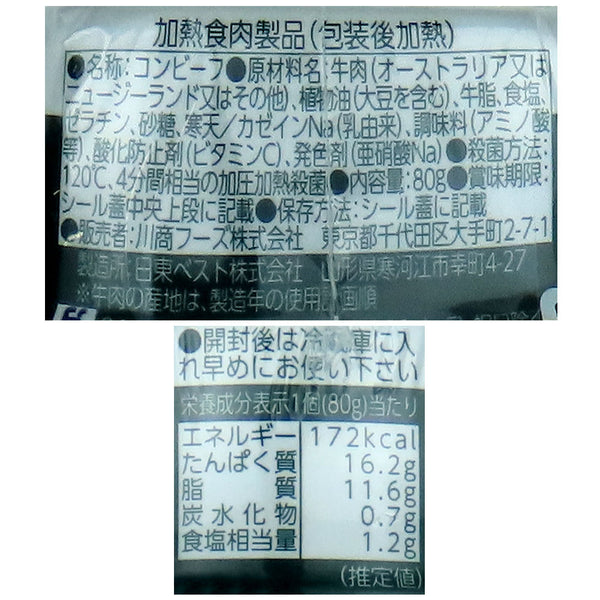 加熱食肉製品(包装後加熱)
●名称:コンビーフ●原材料名:牛肉(オーストラリア又は
ニュージーランド又はその他)、植物油(大豆を含む)、牛脂、食塩、
ゼラチン、砂糖、寒天/カゼインNa(乳由来)、調味料(アミノ酸
等)、酸化防止剤(ビタミンC)、発色剤(亜硝酸Na)●殺菌方法:
120℃、4分間相当の加圧加熱殺菌●内容量:80g●賞味期限:
シール蓋中央上段に記載●保存方法:シール蓋に記載
●販売者:川商フーズ株式会社 東京都千代田区大手町2-7-1
製造所:日東ベスト株式会社 山形県寒河江市幸町4-27
※牛肉の産地は、製造年の使用計画順
●開封後は冷蔵庫に入
れ早めにお使い下さい
栄養成分表示1個(80g)当たり
エネルギー 172kcal
たんぱく質 16.2g
脂質 11.6g
炭水化物 0.7g
食塩相当量 1.2g
(推定値)